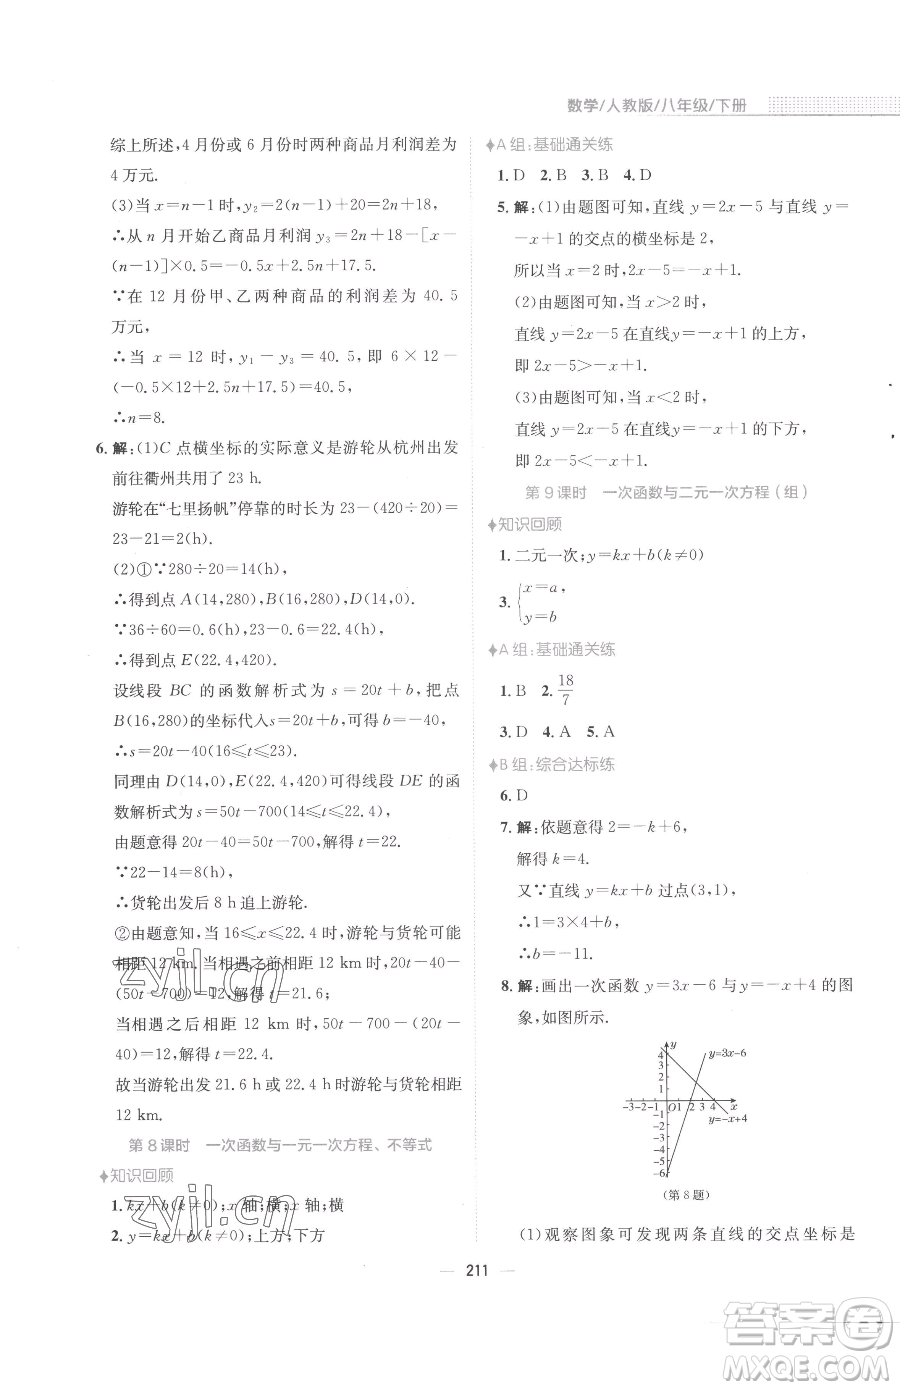 数学/人教版/八年级/下册
综上所述,4 月份或 6 月份时两种商品月利润差为
4 万元.
(3)当 x=n-1 时,y₂=2(n-1)+20=2n+18,
∴从 n 月开始乙商品月利润 y₃=2n+18-[x-
(n-1)]×0.5=-0.5x+2.5n+17.5.
∵在 12 月份甲、乙两种商品的利润差为 40.5
万元,
∴当 x=12 时,y₁-y₃=40.5,即 6×12-
(-0.5×12+2.5n+17.5)=40.5,
∴n=8.
6.解:(1)C 点横坐标的实际意义是游轮从杭州出发
前往衢州共用了 23 h.
游轮在“七里扬帆”停靠的时长为 23-(420÷20)=
23-21=2(h).
(2)①∵280÷20=14(h),
∴得到点 A(14,280),B(16,280),D(14,0).
∵36÷60=0.6(h),23-0.6=22.4(h),
∴得到点 E(22.4,420).
设线段 BC 的函数解析式为 s=20t+b,把点
B(16,280)的坐标代入s=20t+b,可得 b=-40,
∴s=20t-40(16≤t≤23).
同理由 D(14,0),E(22.4,420)可得线段 DE 的函
数解析式为 s=50t-700(14≤t≤22.4),
由题意得 20t-40=50t-700,解得 t=22.
∵22-14=8(h),
∴货轮出发后 8 h 追上游轮.
②由题意知,当 16≤x≤22.4 时,游轮与货轮可能
相距 12 km.当相遇之前相距 12 km 时,20t-40-
(50t-700)=12,解得 t=21.6;
当相遇之后相距 12 km 时,50t-700-(20t-
40)=12,解得 t=22.4.
故当游轮出发 21.6 h 或 22.4 h时游轮与货轮相距
12 km.
第 8 课时 一次函数与一元一次方程、不等式
知识回顾
1.kx+b(k≠0);x 轴;横;x 轴;横
2.y=kx+b(k≠0);上方;下方
A 组:基础通关练
1.D 2.B 3.B 4.D
5.解:(1)由题图可知,直线 y=2x-5 与直线 y=
-x+1 的交点的横坐标是 2,
所以当 x=2 时,2x-5=-x+1.
(2)由题图可知,当 x>2 时,
直线 y=2x-5 在直线 y=-x+1 的上方,
即 2x-5>-x+1.
(3)由题图可知,当 x<2 时,
直线 y=2x-5 在直线 y=-x+1 的下方,
即 2x-5<-x+1.
第 9 课时 一次函数与二元一次方程(组)
知识回顾
1.二元一次;y=kx+b(k≠0)
3.{x=a,
y=b
A 组:基础通关练
1.B 2.18/7
3.D 4.A 5.A
B 组:综合达标练
6.D
7.解:依题意得 2=-k+6,
解得 k=4.
又∵直线 y=kx+b 过点(3,1),
∴1=3×4+b,
∴b=-11.
8.解:画出一次函数 y=3x-6 与 y=-x+4 的图
象,如图所示.
y
y=3x-6
4
3
2
1
-3-2-1 O 1 2 3 4 x
-1
-2
-3
-4
-5
-6
y=-x+4
(第 8 题)
(1)观察图象可发现两条直线的交点坐标是
211
zyjl.cn
zyjl.cn
答案圈
MXQE.COM